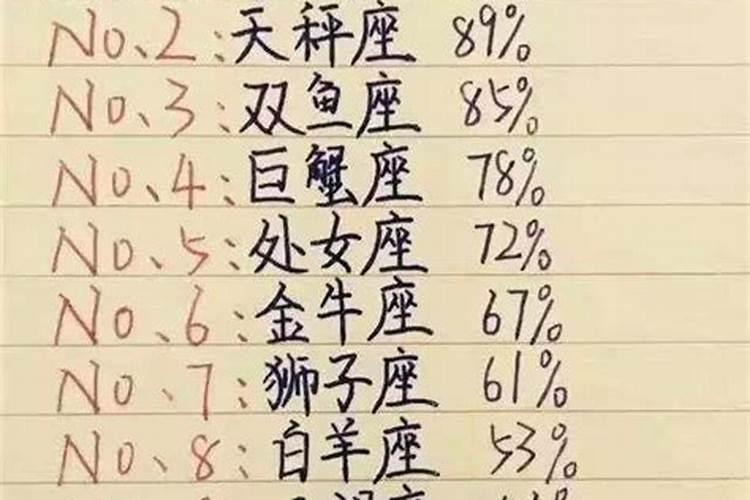 No.2:天秤座 89%
No.3:双鱼座 85%
No.4:巨蟹座 78%
No.5:处女座 72%
No.6:金牛座 67%
No.7:狮子座 61%
No.8:白羊座 53%